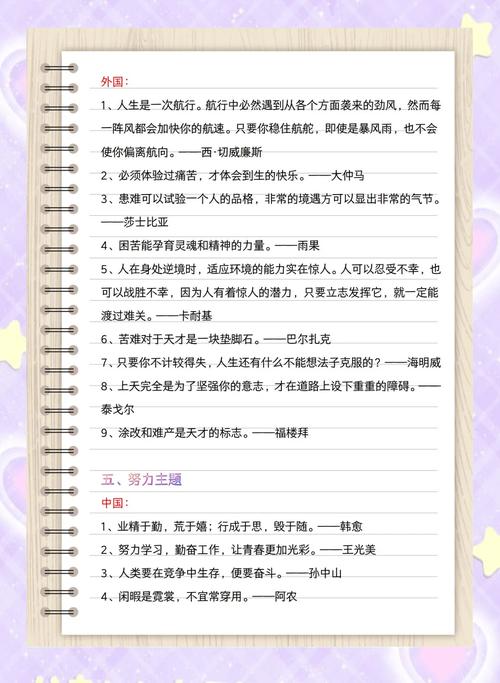 外国：
1、人生是一次航行。航行中必然遇到从各个方面袭来的劲风，然而每
一阵风都会加快你的航速。只要你稳住航舵，即使是暴风雨，也不会
使你偏离航向。——西·切威廉斯
2、必须体验过痛苦，才体会到生的快乐。——大仲马
3、患难可以试验一个人的品格，非常的境遇方可以显出非常的气节。
——莎士比亚
4、困苦能孕育灵魂和精神的力量。——雨果
5、人在身处逆境时，适应环境的能力实在惊人。人可以忍受不幸，也
可以战胜不幸，因为人有着惊人的潜力，只要立志发挥它，就一定能
渡过难关。——卡耐基
6、苦难对于天才是一块垫脚石。——巴尔扎克
7、只要你不计较得失，人生还有什么不能想法子克服的？——海明威
8、上天完全是为了坚强你的意志，才在道路上设下重重的障碍。——
泰戈尔
9、涂改和难产是天才的标志。——福楼拜
五、努力主题
中国：
1、业精于勤，荒于嬉；行成于思，毁于随。——韩愈
2、努力学习，勤奋工作，让青春更加光彩。——王光美
3、人类要在竞争中生存，便要奋斗。——孙中山
4、闲暇是霓裳，不宜常穿用。——阿农